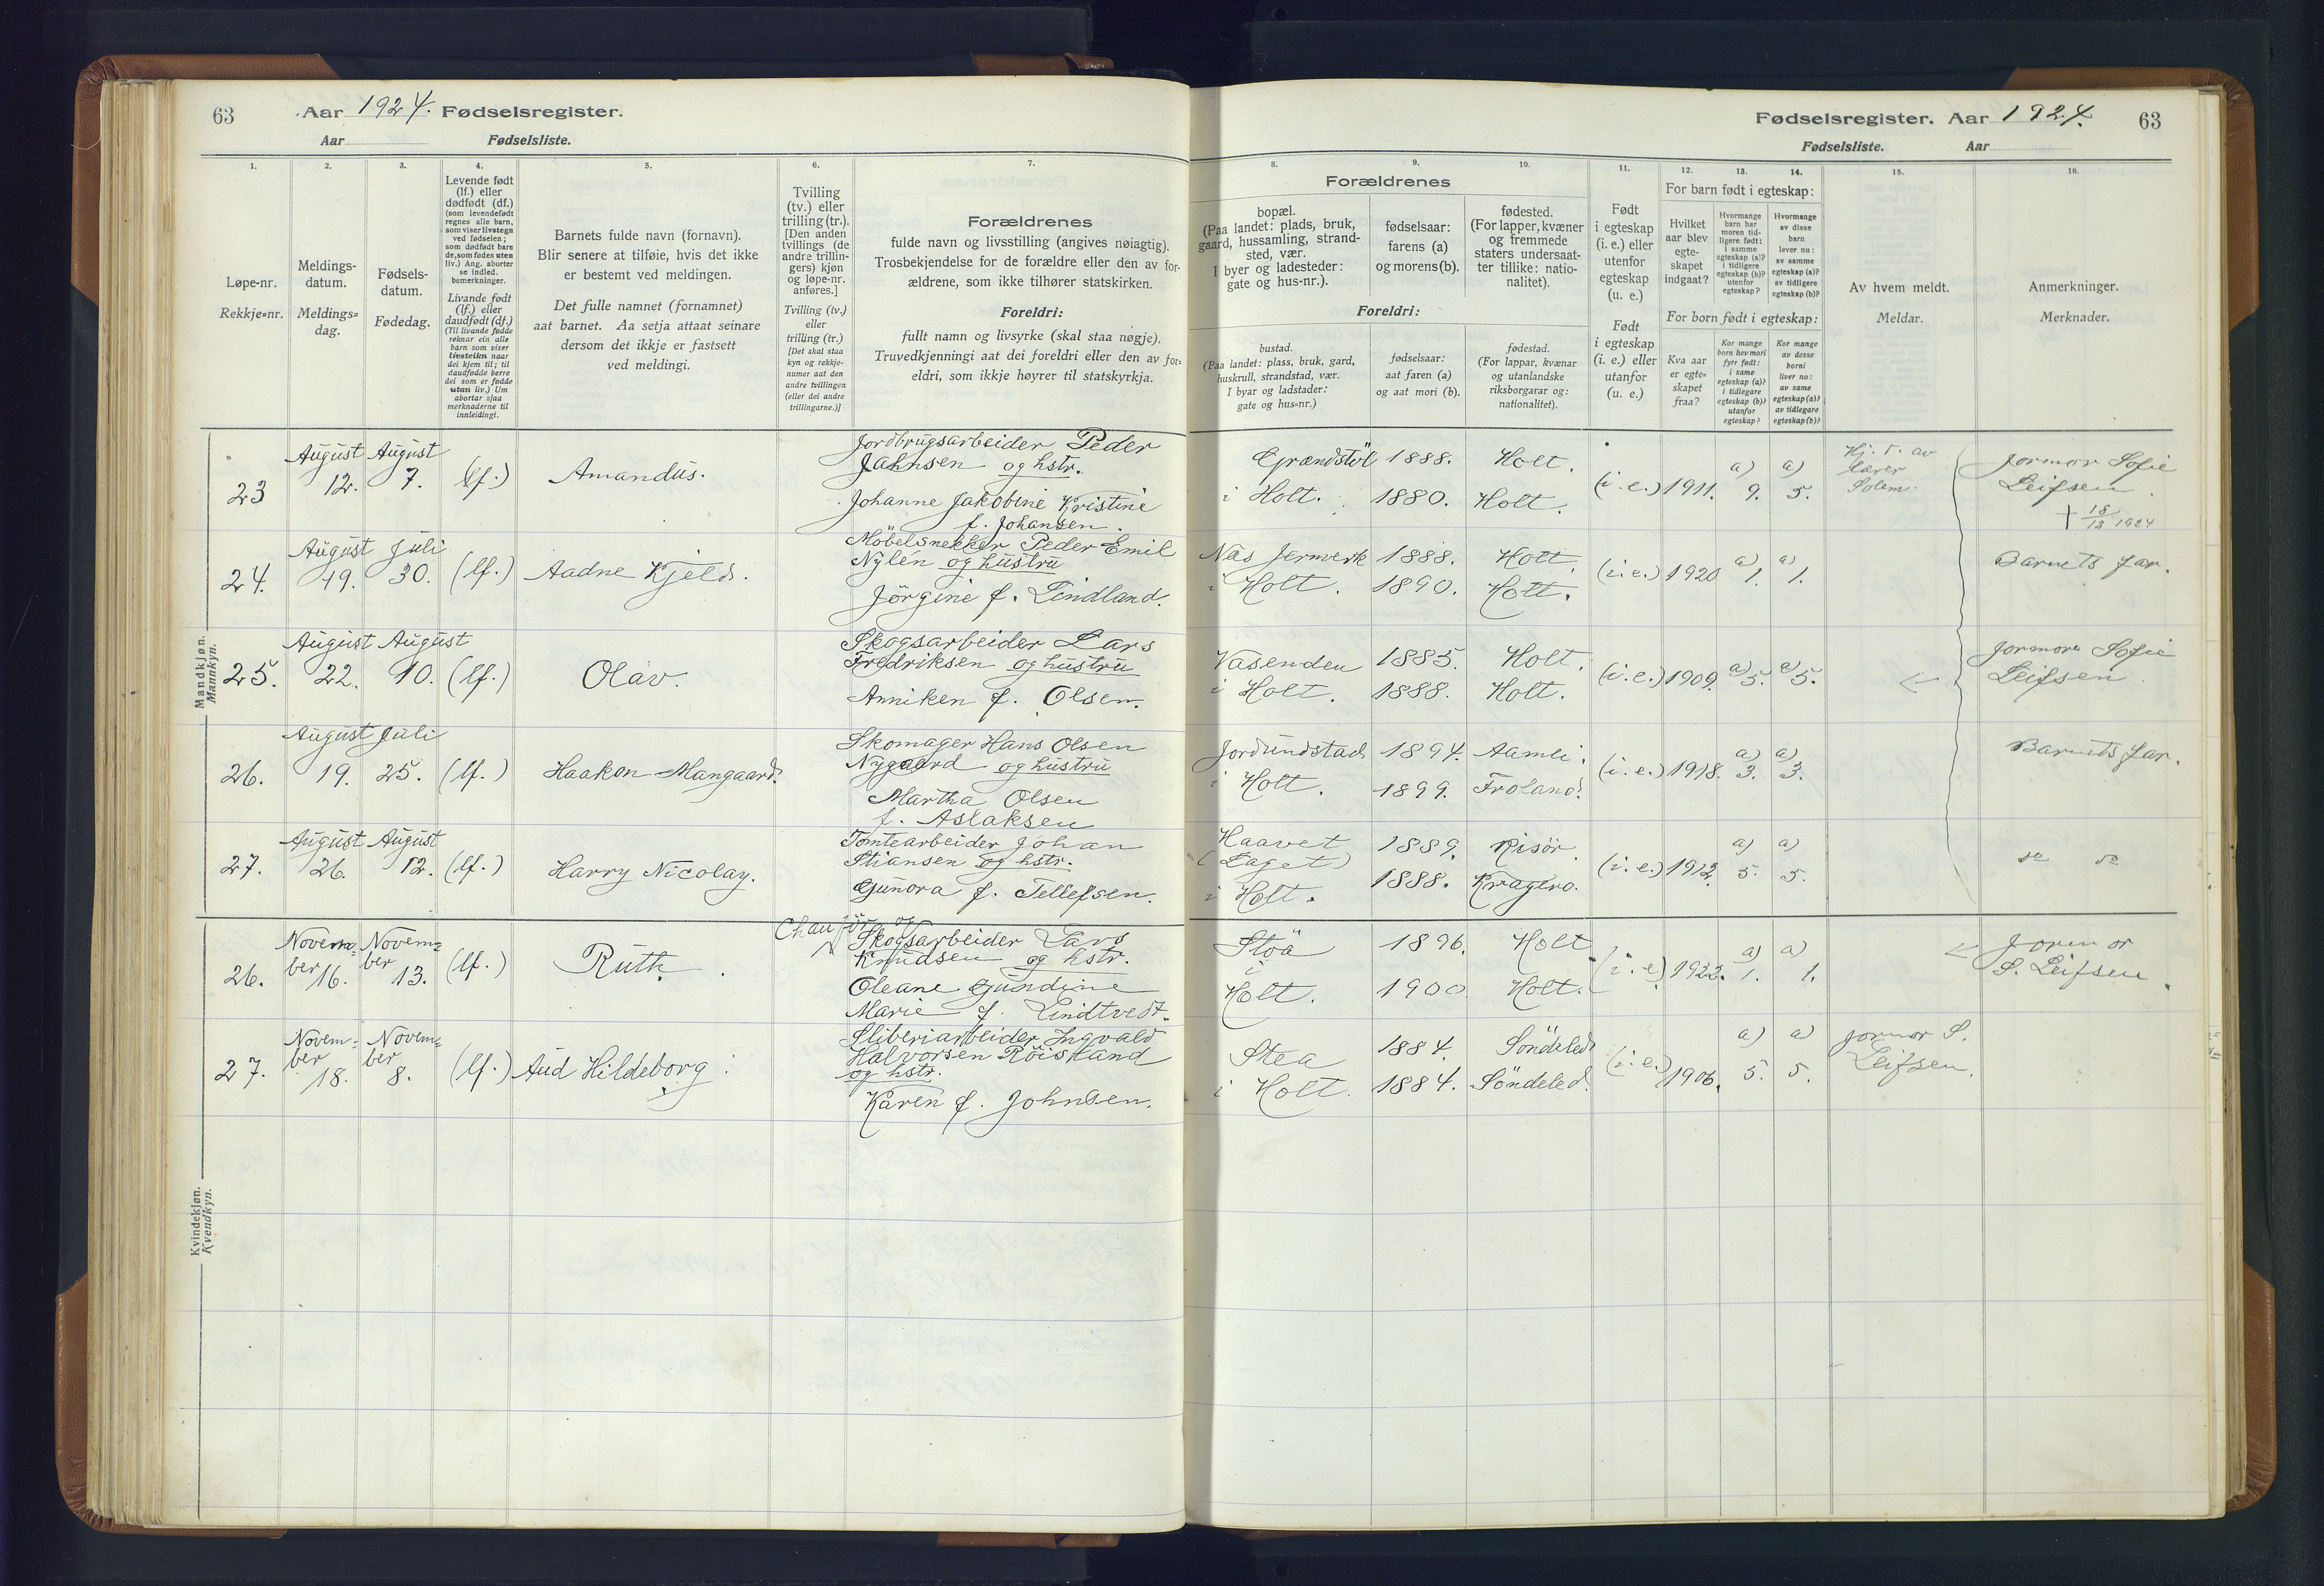 63 Aar 1924. Fødselsregister.
Aar Fødselsliste.
1. 2. 3. 4. 5. 6. 7.
Løpe-nr.
Rekkje=nr.
Meldings-
datum.
Meldings=
dag.
Fødsels-
datum.
Fødedag.
Levende født
(lf.) eller
dødfødt (df.)
(som levendefødt
regnes alle barn,
som viser livstegn
ved fødselen;
som dødfødt bare
de, som fødes uten
liv.) Ang. aborter
se indled.
bemerkninger.
Livande født
(lf.) eller
daudfødt (df.)
(Til livande fødde
reknar ein alle
barn som viser
livsteikn naar
dei kjem til; til
daudfødde berre
dei som er fødde
utan liv.) Um
abortar sjaa
merknaderne til
innleidingi.
Barnets fulde navn (fornavn).
Blir senere at tilføie, hvis det ikke
er bestemt ved meldingen.
Det fulle namnet (fornamnet)
aat barnet. Aa setja attaat seinare
dersom det ikkje er fastsett
ved meldingi.
Tvilling
(tv.) eller
trilling (tr.).
[Den anden
tvillings (de
andre trillin-
gers) kjøn
og løpe-nr.
anføres.]
Tvilling (tv.)
eller
trilling (tr.)
[Det skal staa
kyn og rekkje-
numer aat den
andre tvillingen
(eller dei andre
trillingarne.)]
Forældrenes
fulde navn og livsstilling (angives nøiagtig).
Trosbekjendelse for de forældre eller den av for-
ældrene, som ikke tilhører statskirken.
Foreldri:
fullt namn og livsyrke (skal staa nøgje).
Truvedkjenningi aat dei foreldri eller den av for=
eldri, som ikkje høyrer til statskyrkja.
Mandkjøn.
Mannkyn.
23 August 12. August 7. (lf.) Amandus.
Jordbrugsarbeider Peder
Jahnsen og hstr.
Johanne Jakobine Kristine
f. Johansen.
24. August 19. Juli 30. (lf.) Aadne Kjeld.
Möbelsnekker Peder Emil
Nylén og hustru
Jörgine f. Lindland.
25. August 22. August 10. (lf.) Olav.
Skogsarbeider Lars
Fredriksen og hustru
Anniken f. Olsen.
26. August 19. Juli 25. (lf.) Haakon Mangaard.
Skomager Hans Olsen
Nygaard og hustru
Martha Olsen
f. Aslaksen
27. August 26. August 12. (lf.) Harry Nicolay.
Tomtearbeider Johan
Stiansen og hstr.
Gunora f. Tellefsen.
Kvindekjøn.
Kvendkyn.
26. Novem=
ber 16. Novem=
ber 13. (lf.) Ruth.
Chauför og
Skogsarbeider Lars
Knudsen og hstr.
Oleane Gundine
Marie f. Lindtvedt.
27. Novem=
ber 18. Novem=
ber 8. (lf.) Aud Hildeborg
Sliberiarbeider Ingvald
Halvorsen Röisland
og hstr.
Karen f. Johnsen.
Fødselsregister. Aar 1924. 63
Fødselsliste. Aar
8. 9. 10. 11. 12. 13. 14. 15. 16.
Forældrenes
bopæl.
(Paa landet: plads, bruk,
gaard, hussamling, strand-
sted, vær.
I byer og ladesteder:
gate og hus-nr.).
fødselsaar:
farens (a)
og morens (b).
fødested.
(For lapper, kvæner
og fremmede
staters undersaat-
ter tillike: natio-
nalitet).
Foreldri:
bustad.
(Paa landet: plass, bruk, gard,
huskrull, strandstad, vær.
I byar og ladstader:
gate og hus-nr.)
fødselsaar:
aat faren (a)
og aat mori (b).
fødestad.
(For lappar, kvænar
og utanlandske
riksborgarar og:
nationalitet).
Født
i egteskap
(i. e.) eller
utenfor
egteskap
(u. e.)
Født
i egteskap
(i. e.) eller
utanfor
(u. e.)
For barn født i egteskap:
Hvilket
aar blev
egte-
skapet
indgaat?
Hvormange
barn har
moren tid-
ligere født:
i samme
egteskap (a)?
i tidligere
egteskap (b)?
utenfor
egteskap?
Hvormange
av disse
barn
lever nu:
av samme
egteskap (a)?
av tidligere
egteskap (b)?
For born født i egteskap:
Kva aar
er egte-
skapet
fraa?
Kor mange
born hev mori
fyrr født:
i same
egteskap (a)?
i tidlegare
egteskap (b)?
utanfor
egteskap?
Kor mange
av desse
borni
liver no:
av same
egteskap (a)?
av tidlegare
egteskap (b)?
Av hvem meldt.
Meldar.
Anmerkninger.
Merknader.
Grændstöl
i Holt. 1888. 1880. Holt. Holt. (i. e.) 1911. a) 9. a) 5. av
lærer
Solem.
Jormor Sofie
Leifsen
† 18/12 1924
Nas Jernverk
i Holt. 1888. 1890. Holt. Holt. (i. e.) 1920 a) 1. a) 1. Barnets far.
Vasenden
i Holt. 1885. 1888. Holt. Holt. (i. e.) 1909. a) 5. a) 5. Jormor Sofie
Leifsen
Jordundstad
i Holt. 1894. 1899. Aamli. Froland. (i. e.) 1918. a) 3. a) 3. Barnets far.
Haavet
(Laget)
i Holt. 1889. 1888. Risör. Kragerö. (i. e.) 1912. a) 5. a) 5.
Stöa
i
Holt. 1896. 1900 Holt Holt. (i. e.) 1922. a) 1. a) 1. Jormor
S. Leifsen
Stea
i Holt. 1884. 1884. Söndeled Söndeled. (i. e.) 1906. a) 5. a) 5. Jormor S.
Leifsen.